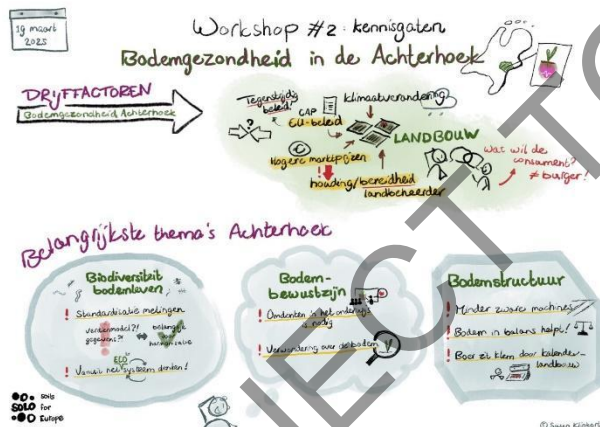 19 maart
2025
Workshop #2: kennisgaten
Bodemgezondheid in de Achterhoek
DRIJFFACTOREN
Bodemgezondheid Achterhoek
Tegenstrijdig
beleid!
?
CAP
EU-beleid
klimaatverandering
LANDBOUW
Hogere marktprijzen
!
houding/bereidheid
landbeheerder
Wat wil de
consument?
≠ burger!
Belangrijkste thema's Achterhoek
Biodiversiteit
bodemleven
! Standaardisatie metingen
verdienmodel?!
gegevens?!
belangrijk
harmonisatie
ECO
! Vanuit het systeem denken!
Bodem-
bewustzijn
! Omdenken is het onderwijs
is nodig
! Verwondering over de bodem
Bodemstructuur
! Minder zware machines
! Bodem in balans helpt!
! Boer zit klem door kalender-
landbouw
SOLO
Soils
for
Europe
PROJECT